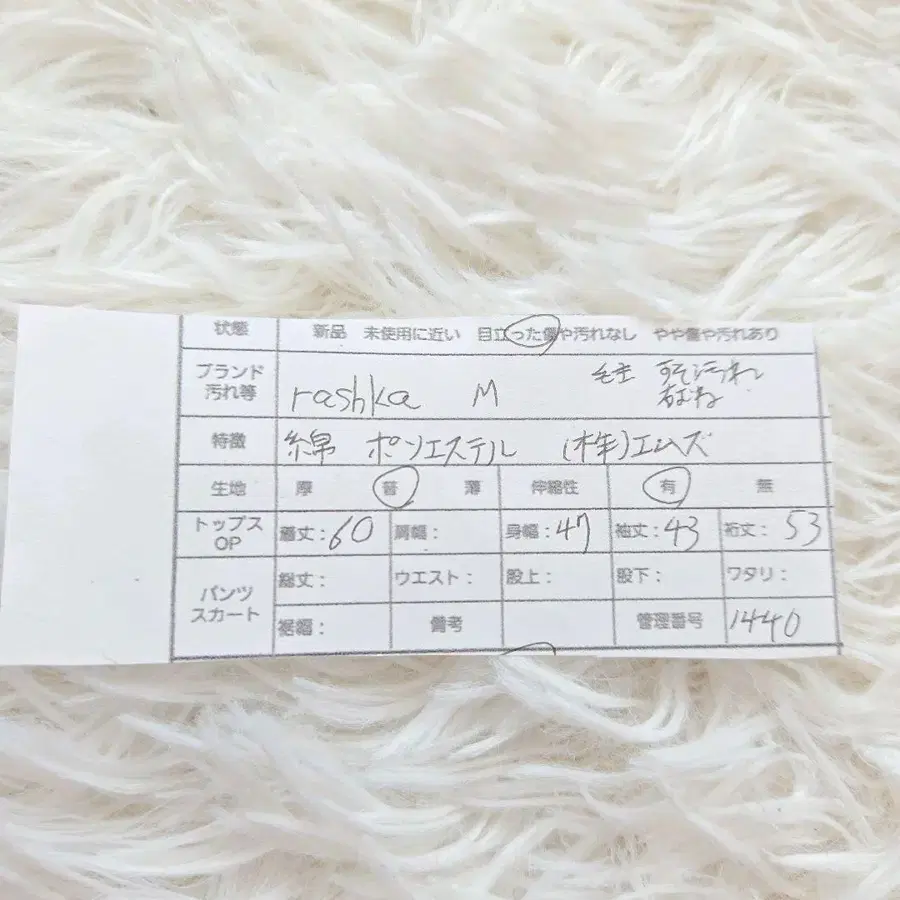 状態 新品 未使用に近い 目立った傷や汚れなし やや傷や汚れあり
ブランド 汚れ等 rashka M すそ汚れ
特徴 綿 ポリエステル (株)エムズ
生地 厚 普 薄 伸縮性 有 無
トップス OP 着丈:60 肩幅: 身幅:47 袖丈:43 裄丈:53
パンツ スカート 総丈: ウエスト: 股上: 股下: ワタリ:
裾幅: 備考 管理番号 1440